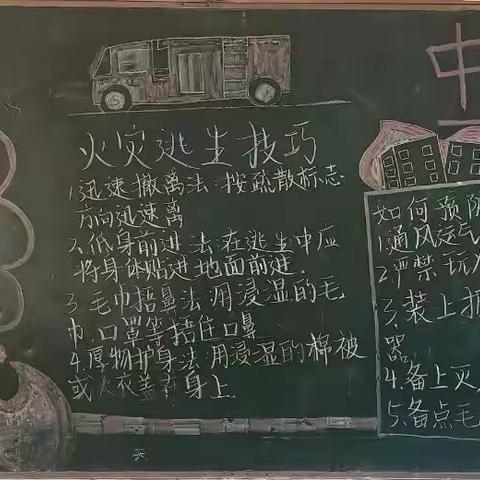 中
火灾逃生技巧
1.迅速撤离法:按疏散标志
方向迅速离
2.低身前进法:在逃生中应
将身体贴进地面前进.
3.毛巾捂鼻法:用浸湿的毛
巾.口罩等捂住口鼻
4.厚物护身法:用浸湿的棉被
或大衣盖在身上.
如何预防
1.通风运气
2.严禁玩火
3.装上
器
4.备上灭
5.备点毛
天